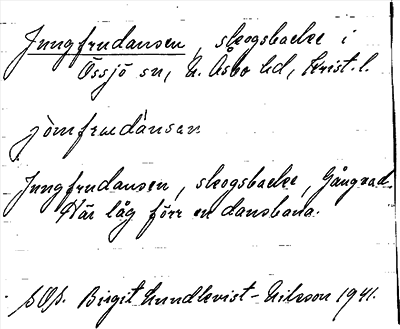 Jungfrudansen, skogsbacke i
Össjö sn, N. Åsbo hd, Krist. l.
jomfrudansen
Jungfrudansen, skogsbacke, Gångvad.
Här låg förr en dansbana.
SOp. Birgit Lundkvist-Nilsson 1941.